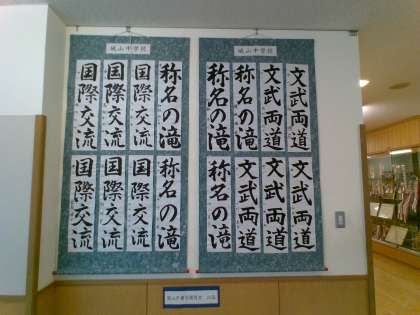 城山中学校
文武両道
文武両道
称名の滝
称名の滝
文武両道
文武両道
文武両道
称名の滝
城山中学校
称名の滝
国際交流
国際交流
国際交流
称名の滝
国際交流
国際交流
国際交流